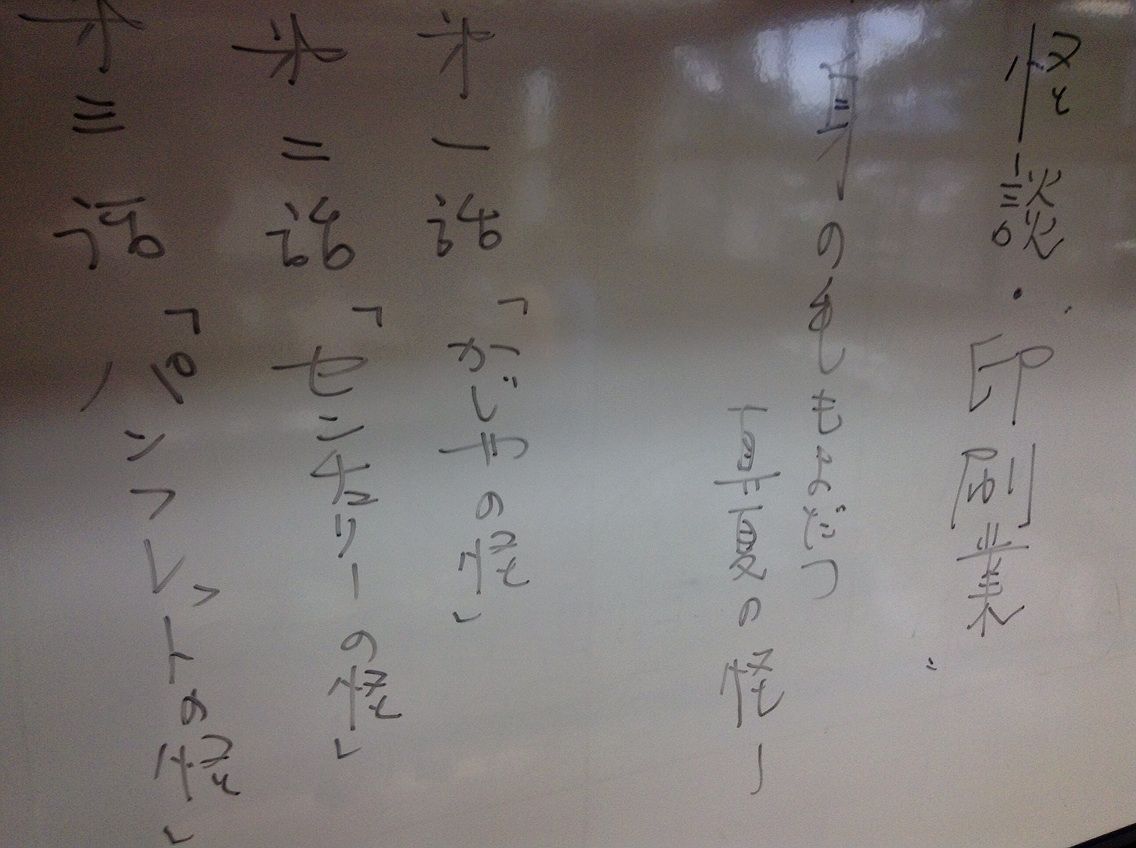 怪談・印刷業
身の毛もよだつ
真夏の怪ー
第一話「の怪」
第二話「センチュリーの怪」
第三話「パンフレットの怪」